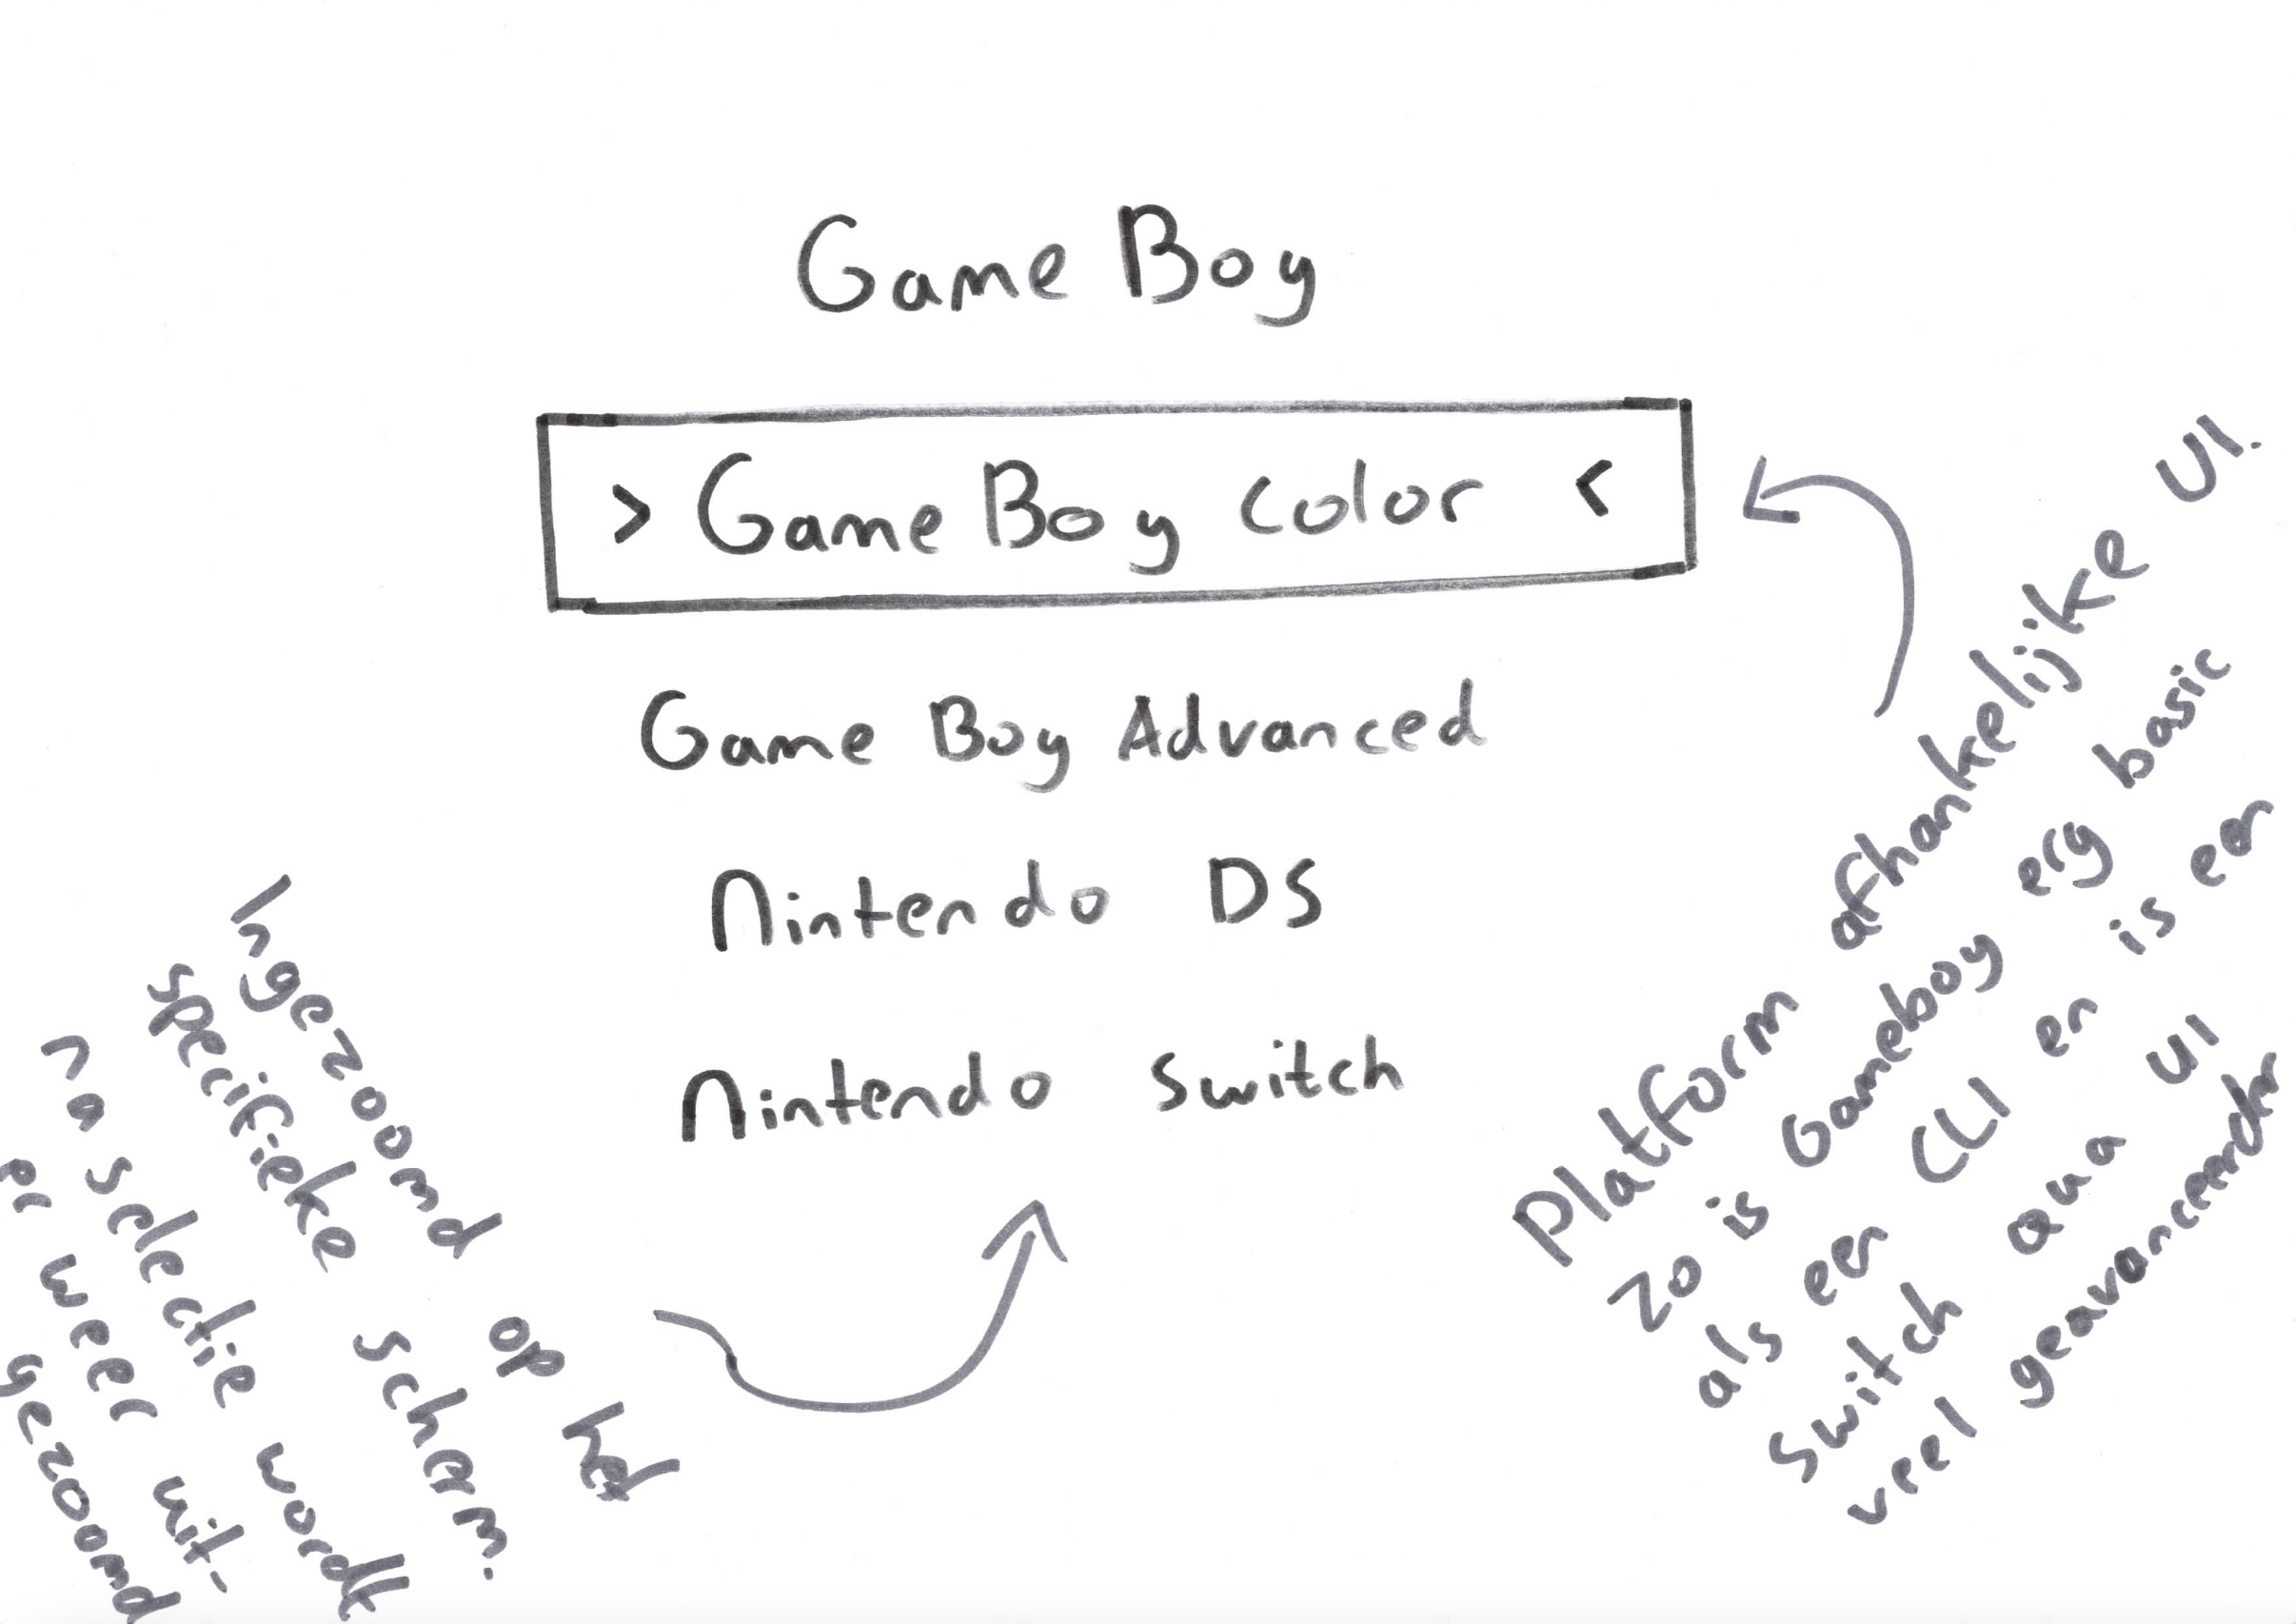 Game Boy
> Game Boy color <
Game Boy Advanced
Nintendo DS
Nintendo Switch
Ingezoomd op het
specifieke scherm.
na selectie wordt
er weer uit-
gezoomd
Platform afhankelijke UI.
Zo is Gameboy erg basic
als een CLI en is een
Switch qua UI
veel geavanceerder